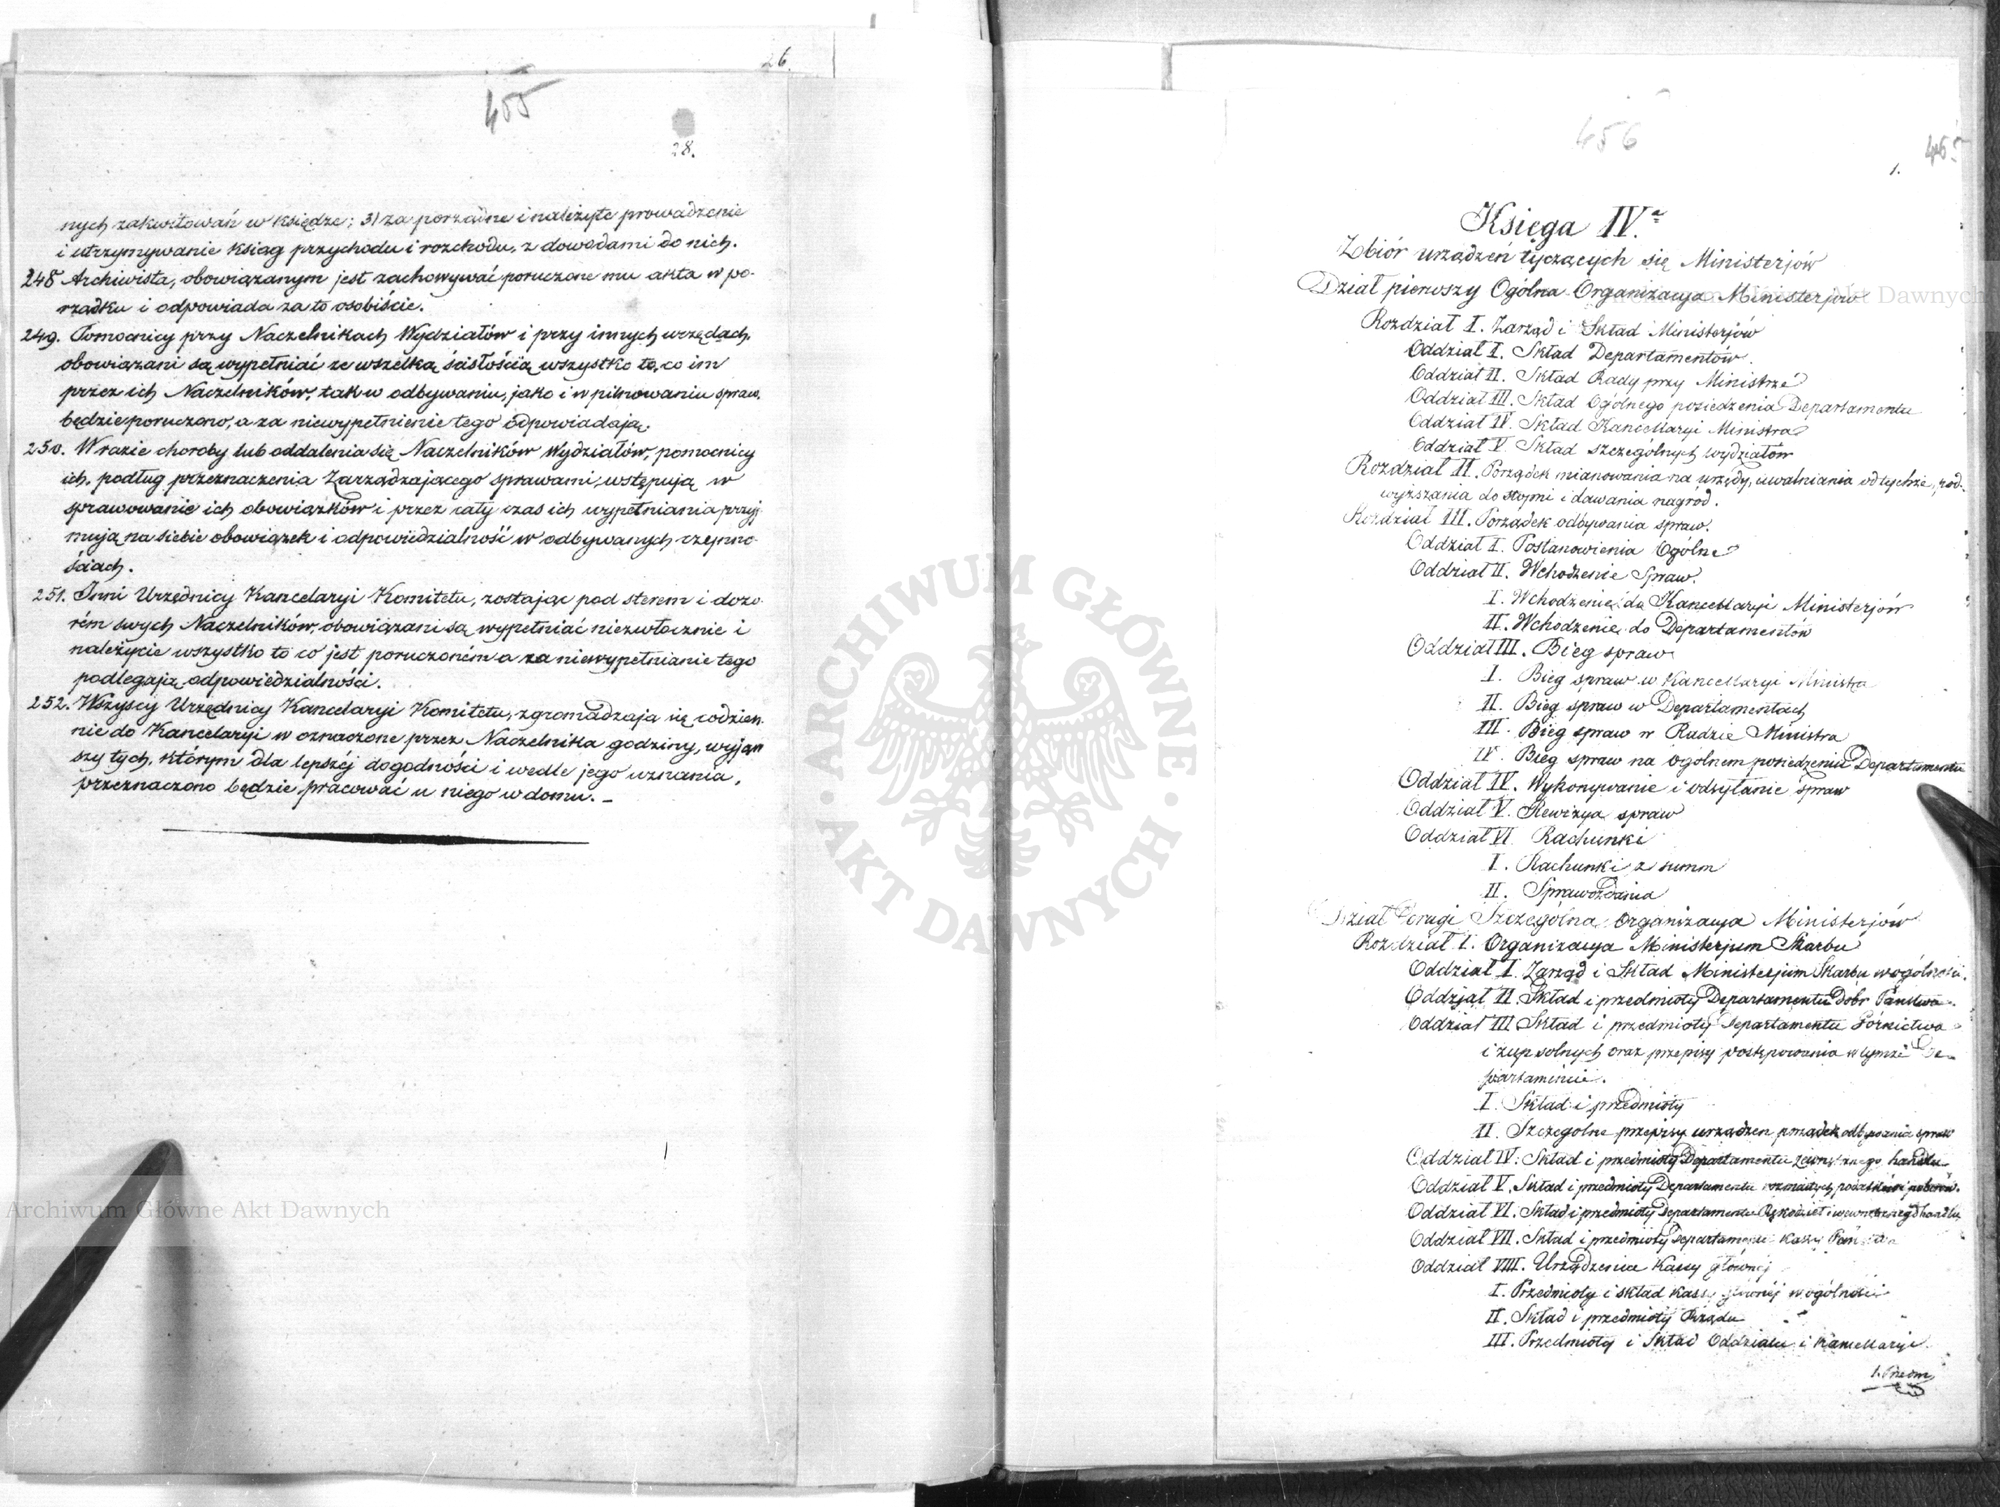 26.
455
28.
nych zakwitowań w księdze; 3) za porządne i należyte prowadzenie
i utrzymywanie ksiąg przychodu i rozchodu, z dowodami do nich.
248 Archiwista, obowiązanym jest zachowywać poruczone mu akta w po-
rządku i odpowiada za to osobiście.
249. Pomocnicy przy Naczelnikach Wydziałów i przy innych urzędach,
obowiązani są wypełniać ze wszelką ścisłością wszystko to, co im
przez ich Naczelników, tak w odbywaniu, jako i w pilnowaniu spraw,
będzie poruczono, a za niewypełnienie tego odpowiadają.
250. W razie choroby lub oddalenia się Naczelników Wydziałów, pomocnicy
ich, podług przeznaczenia Zarządzającego sprawami, wstępują w
sprawowanie ich obowiązków i przez cały czas ich wypełniania przyj-
mują na siebie obowiązek i odpowiedzialność w odbywanych czynno-
ściach.
251. Inni Urzędnicy Kancelaryi Komitetu, zostając pod sterem i dozo-
rem swych Naczelników, obowiązani są wypełniać niezwłocznie i
należycie wszystko to co jest poruczoném a za niewypełnianie tego
podlegają odpowiedzialności.
252. Wszyscy Urzędnicy Kancelaryi Komitetu, zgromadzają się codzien-
nie do Kancelaryi w oznaczone przez Naczelnika godziny, wyjąw-
szy tych, którym dla lepszéj dogodności i wedle jego uznania,
przeznaczono będzie, pracować u niego w domu. –
456
465
1.
Księga IV.a
Zbiór urządzeń tyczących się Ministerjów
Dział pierwszy Ogólna Organizacya Ministerjów
Rozdział I. Zarząd i Skład Ministerjów
Oddział I. Skład Departamentów.
Oddział II. Skład Rady przy Ministrze
Oddział III. Skład Ogólnego posiedzenia Departamentu
Oddział IV. Skład Kancellaryi Ministra
Oddział V. Skład szczególnych wydziałów
Rozdział II. Porządek mianowania na urzędy, uwalniania od tychże, pod-
wyższania do stopni i dawania nagród.
Rozdział III. Porządek odbywania spraw.
Oddział I. Postanowienia Ogólne
Oddział II. Wchodzenie Spraw.
I. Wchodzenie do Kancellaryi Ministerjów
II. Wchodzenie do Departamentów
Oddział III. Bieg spraw
I. Bieg spraw w Kancellaryi Ministra
II. Bieg spraw w Departamentach
III. Bieg spraw w Radzie Ministra
IV. Bieg spraw na ogólnem posiedzeniu Departamentu
Oddział IV. Wykonywanie i odsyłanie spraw
Oddział V. Rewizya spraw
Oddział VI. Rachunki
I. Rachunki z summ
II. Sprawozdania
Dział Drugi Szczególna Organizacya Ministerjów
Rozdział I. Organizacya Ministerjum Skarbu
Oddział I. Zarząd i Skład Ministerjum Skarbu w ogólności.
Oddział II. Skład i przedmioty Departamentu Dóbr Państwa.
Oddział III Skład i przedmioty Departamentu Górnictwa
i żup solnych oraz przepisy postępowania w tymże De-
partamencie.
I. Skład i przedmioty
II. Szczególne przepisy urządzeń porządek odbywania spraw
Oddział IV. Skład i przedmioty Departamentu zewnętrznego handlu
Oddział V. Skład i przedmioty Departamentu rozmaitych podatków i poborów.
Oddział VI. Skład i przedmioty Departamentu Rękodzieł i wewnętrznego handlu
Oddział VII. Skład i przedmioty Departamentu Kassy Państwa
Oddział VIII. Urządzenie Kassy głównéj
I. Przedmioty i skład kassy głównéj w ogólności
II. Skład i przedmioty Rządu
III. Przedmioty i Skład Oddziału i Kancellaryi
1. Przedm
ARCHIWUM GŁÓWNE · AKT DAWNYCH ·
Archiwum Główne Akt Dawnych
Akt Dawnych